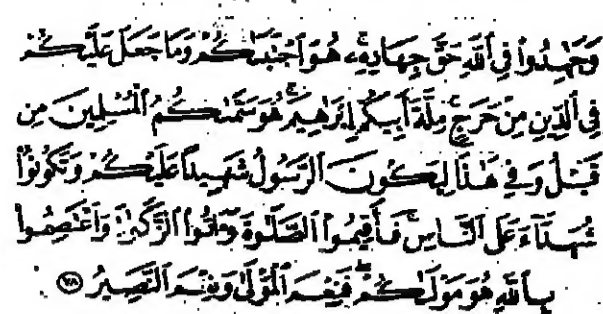 وَجَٰهِدُوا۟ فِى ٱللَّهِ حَقَّ جِهَادِهِۦ ۚ هُوَ ٱجْتَبَىٰكُمْ وَمَا جَعَلَ عَلَيْكُمْ
فِى ٱلدِّينِ مِنْ حَرَجٍ ۚ مِّلَّةَ أَبِيكُمْ إِبْرَٰهِيمَ ۚ هُوَ سَمَّىٰكُمُ ٱلْمُسْلِمِينَ مِن
قَبْلُ وَفِى هَٰذَا لِيَكُونَ ٱلرَّسُولُ شَهِيدًا عَلَيْكُمْ وَتَكُونُوا۟
شُهَدَآءَ عَلَى ٱلنَّاسِ ۚ فَأَقِيمُوا۟ ٱلصَّلَوٰةَ وَءَاتُوا۟ ٱلزَّكَوٰةَ وَٱعْتَصِمُوا۟
بِٱللَّهِ هُوَ مَوْلَىٰكُمْ ۖ فَنِعْمَ ٱلْمَوْلَىٰ وَنِعْمَ ٱلنَّصِيرُ ٧٨